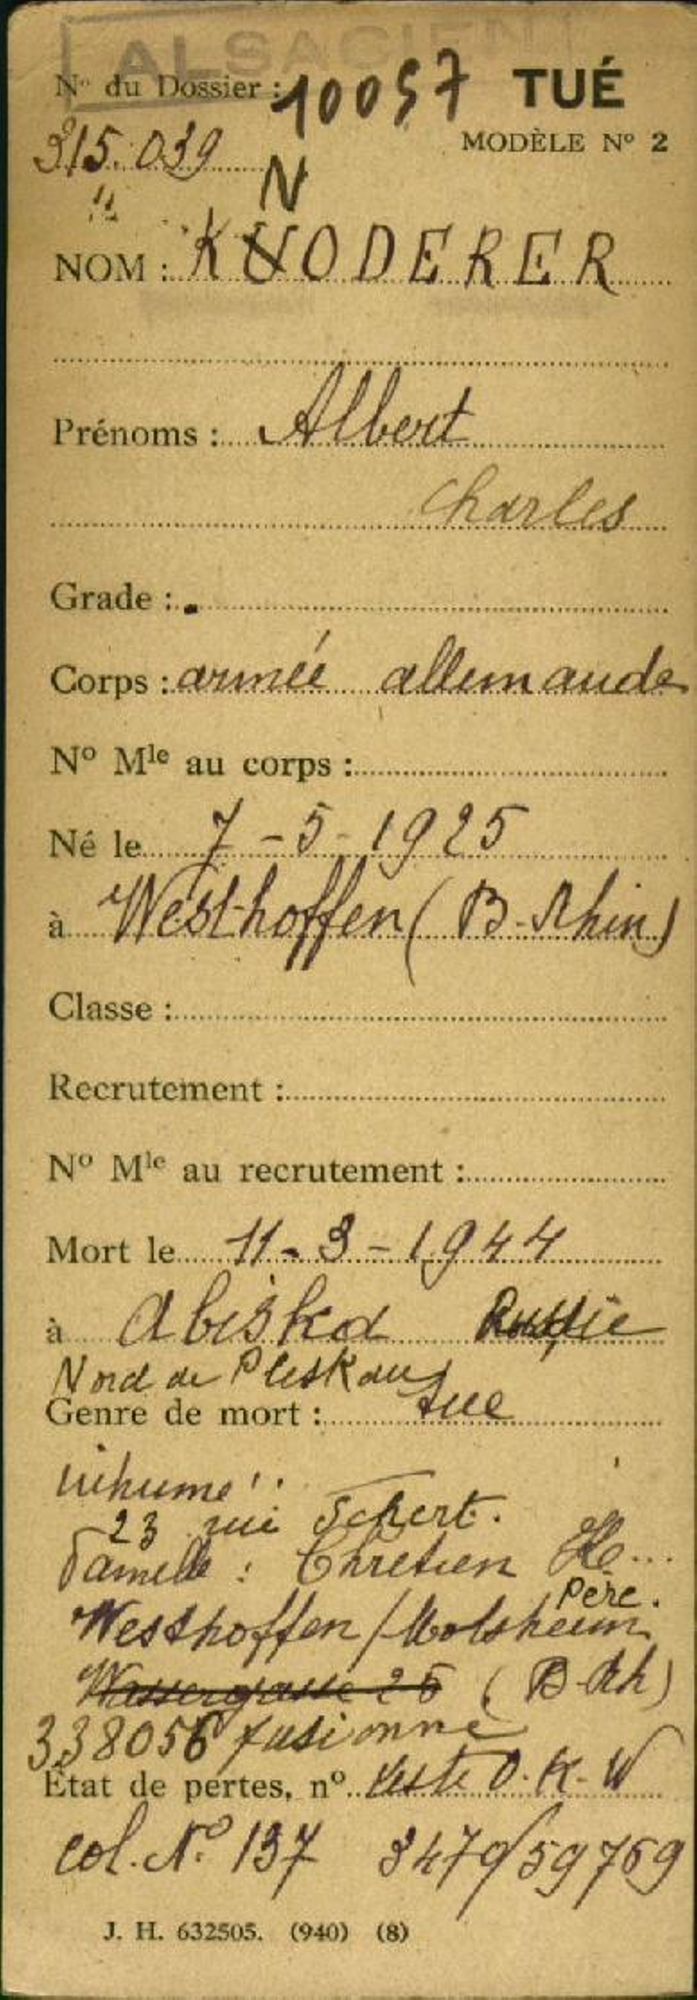 ALSACIEN
N° du Dossier : 10057 TUÉ
315.039 MODÈLE N° 2
" N
NOM : KUODERER
Prénoms : Albert
Charles
Grade : .
Corps : armée allemande
N° Mle au corps :
Né le 7-5-1925
à Westhoffen (B-Rhin)
Classe :
Recrutement :
N° Mle au recrutement :
Mort le 11-3-1944
à Abiska Russie
Nord de Pleskau
Genre de mort : tué
inhumé
23 rue
Famille : Chretien K...
Père.
Westhoffen / Molsheim
Wassergasse 25 (B-Rh)
338056 fusionné
État de pertes, n° Liste O.K.W
col. N° 137 3479/59769
J. H. 632505. (940) (8)